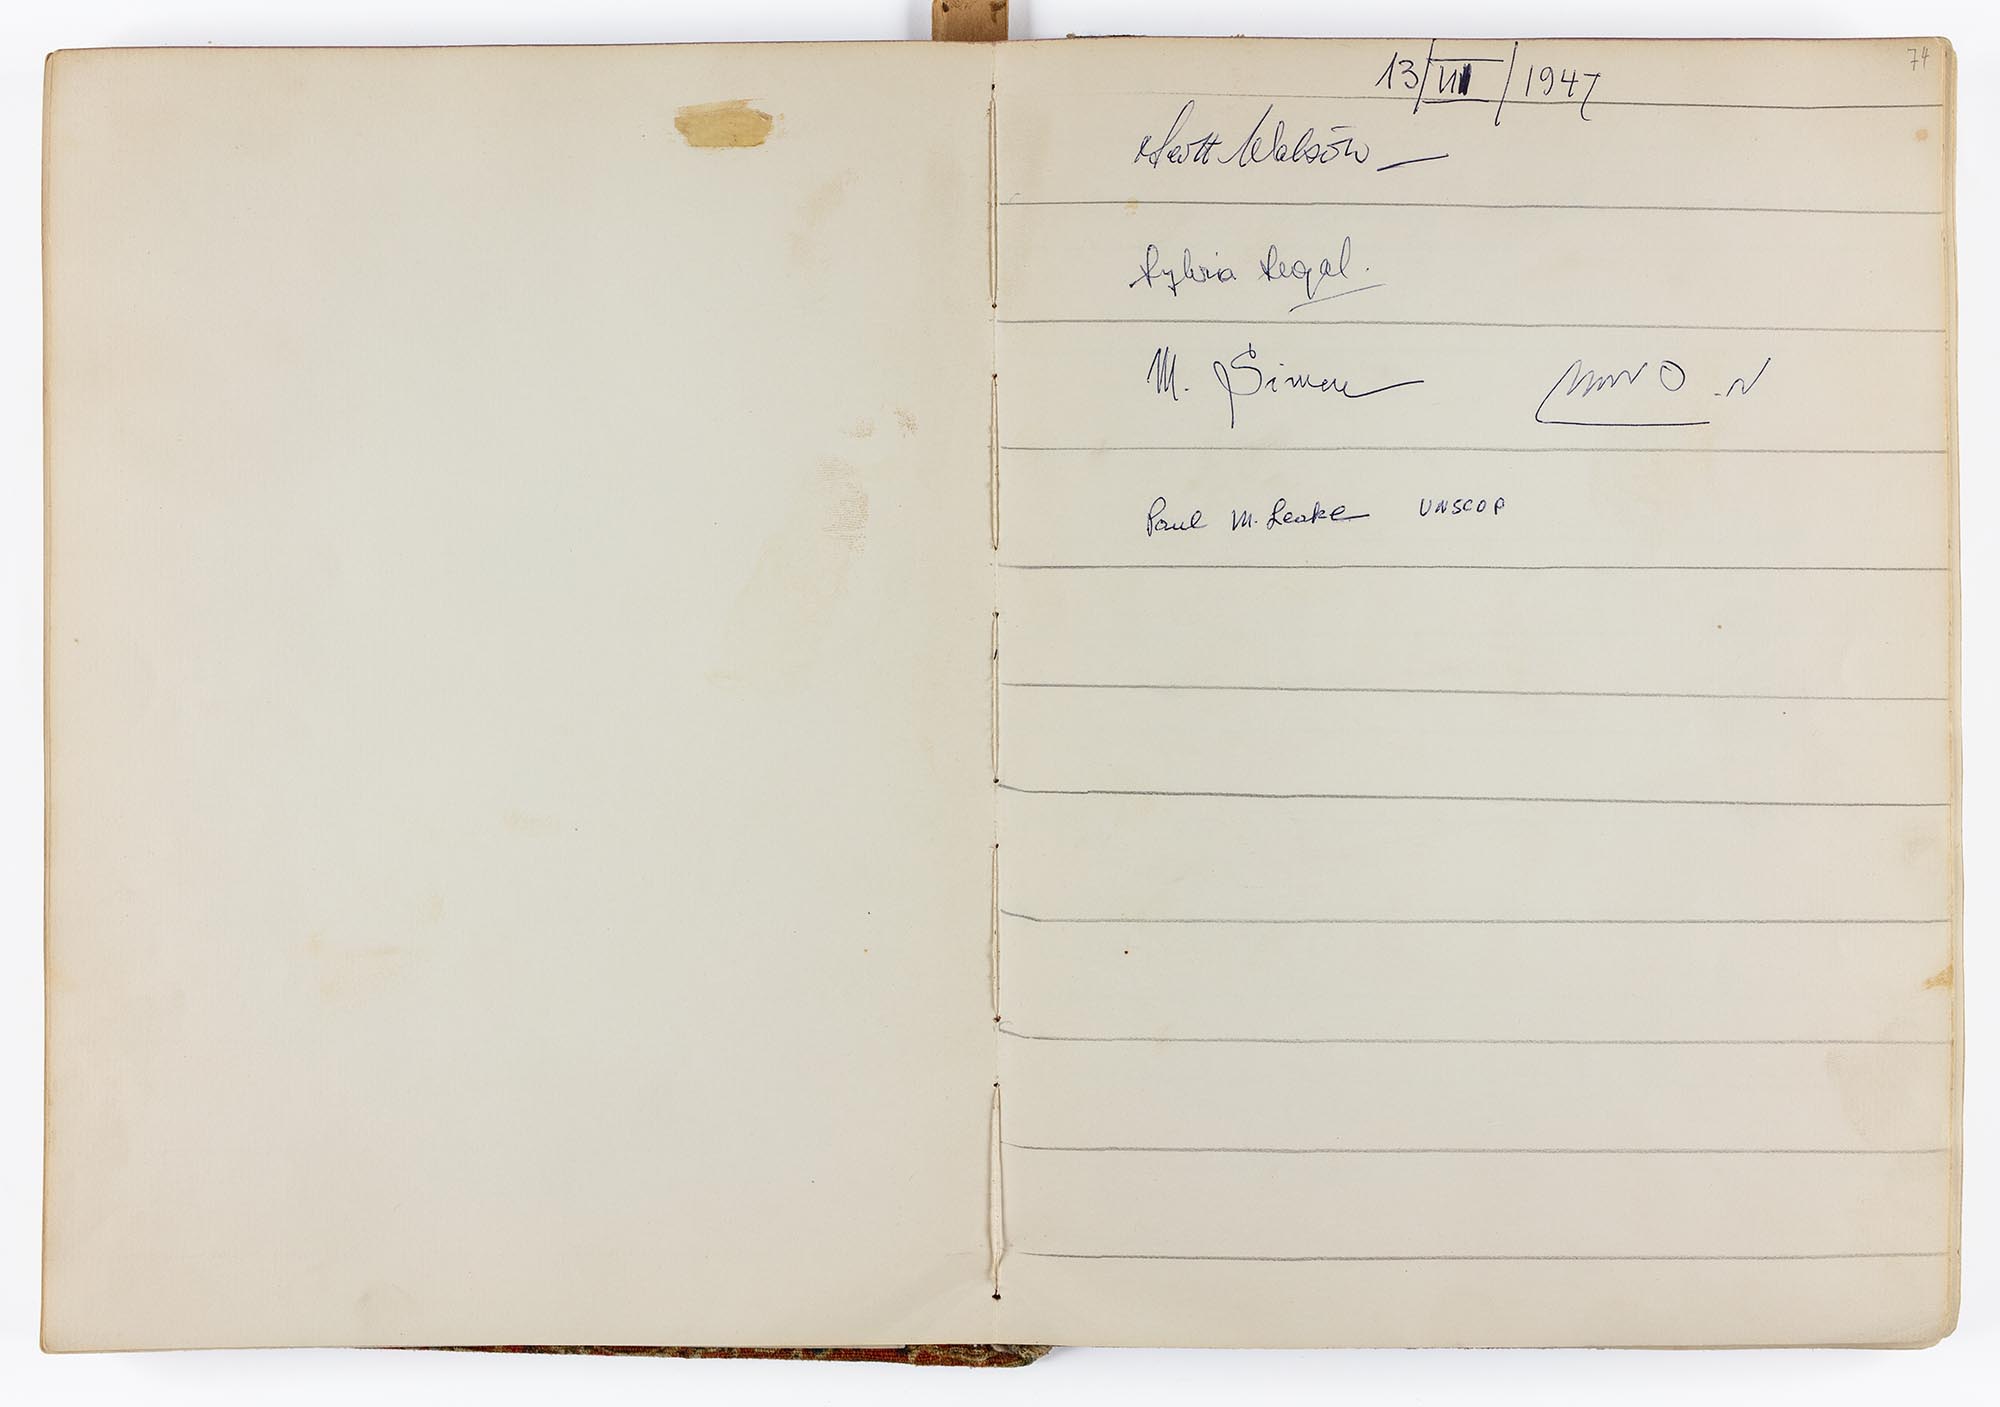 74
13/VII/1947
Scott Watson
Sylvia Segal.
M. Simon
Paul M. Leake UNSCOP